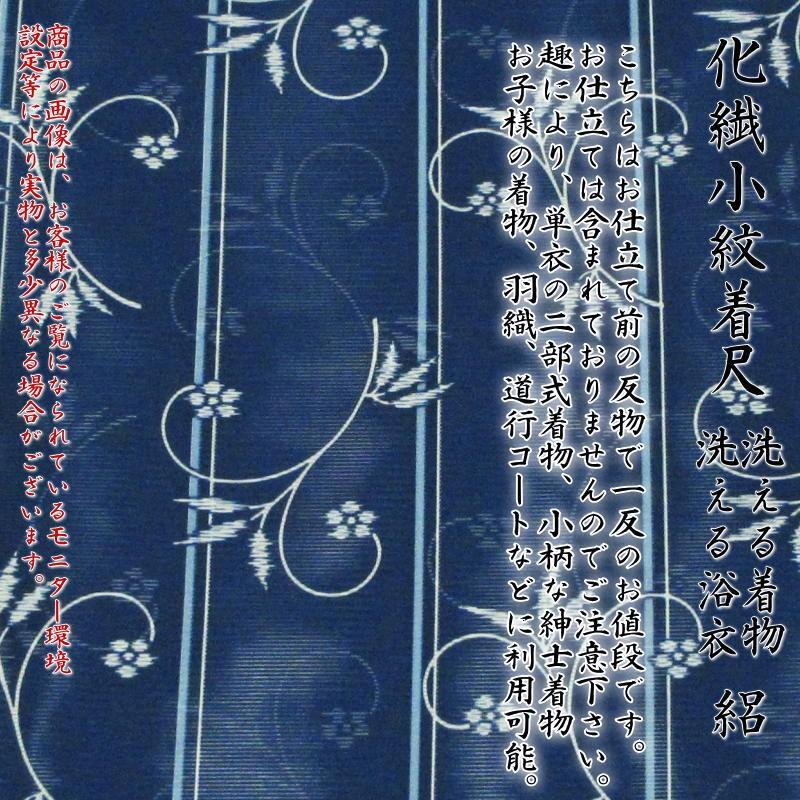 化繊小紋着尺
洗える着物
洗える浴衣
絽
こちらはお仕立て前の反物で一反のお値段です。
お仕立ては含まれておりませんのでご注意下さい。
趣により、単衣の二部式着物、小柄な紳士着物
お子様の着物、羽織、道行コートなどに利用可能。
商品の画像は、お客様のご覧になられているモニター環境
設定等により実物と多少異なる場合がございます。